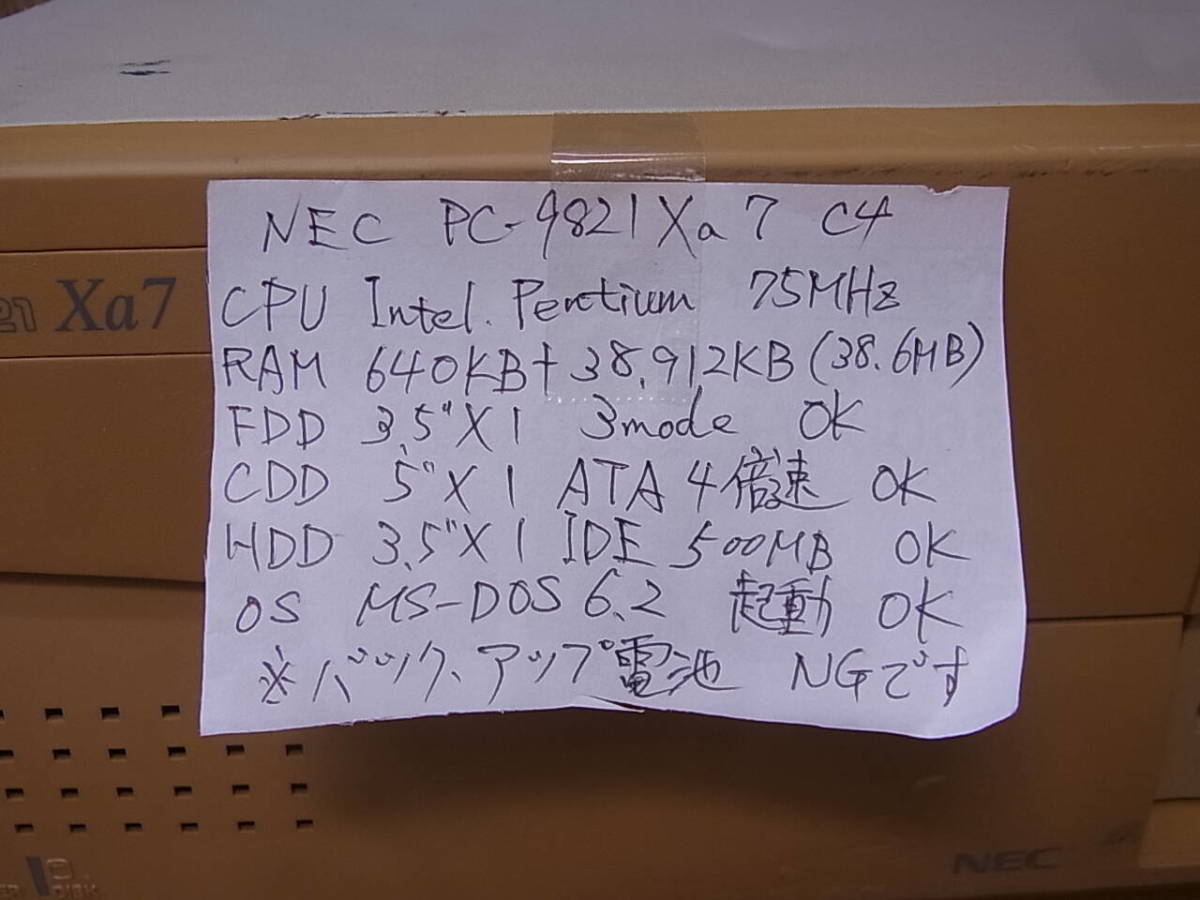 NEC PC-9821Xa7 C4
21 Xa7
CPU Intel. Pentium 75MHz
RAM 640KB+38,912KB(38.6MB)
FDD 3.5"X1 3mode OK
CDD 5"X1 ATA 4倍速 OK
HDD 3.5"X1 IDE 500MB OK
OS MS-DOS 6.2 起動 OK
※バックアップ電池 NGです
NEC
DISK